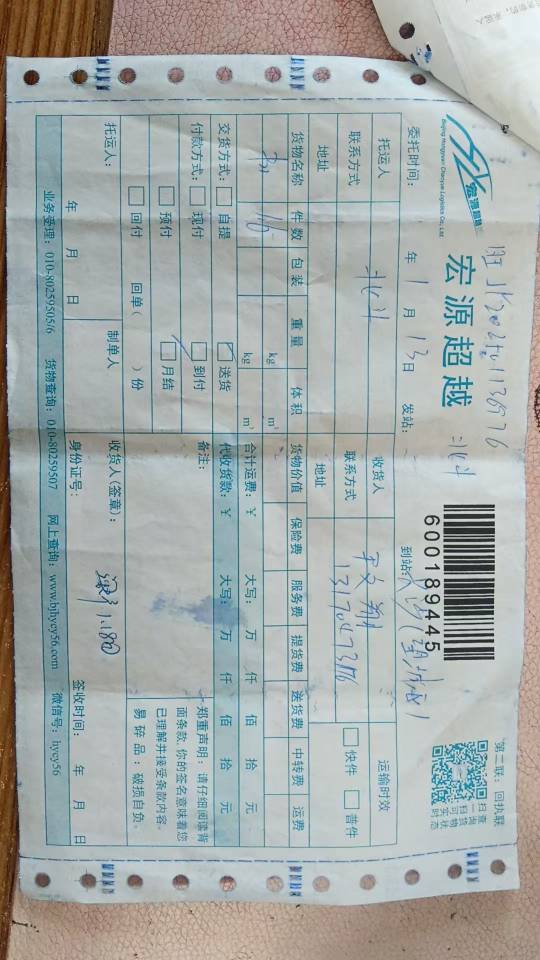 宏源超越
Beijing Hongyuan Chaoyue Logistics Co., Ltd.
宏源超越
600189445
第二联：回执联
扫一扫
查询货物
实时状态
委托时间： 年 1 月 13 日 发站： 北斗 到站：
托运人 收货人 运输时效
联系方式 北斗 联系方式 快件 普件
地址 地址
货物名称 件数 包装 重量 体积 货物价值 保险费 服务费 提货费 送货费 中转费 运费
kg m³
kg m³ 合计运费：￥ 大写： 万 仟 佰 拾 元
交货方式： 自提 送货 代收货款：￥ 大写： 万 仟 佰 拾 元
付款方式： 现付 到付 备注：
预付 月结
回付 回单（ ）份
郑重声明：请仔细阅读背
面条款，你的签名意味着您
已理解并接受条款内容。
易碎品：破损自负。
托运人： 制单人 收货人(签章)：
年 月 日 身份证号： 签收时间： 年 月 日
业务受理：010-80259505/6 货物查询：010-80259507 网上查询：www.bjhycy56.com 微信号：hycy56